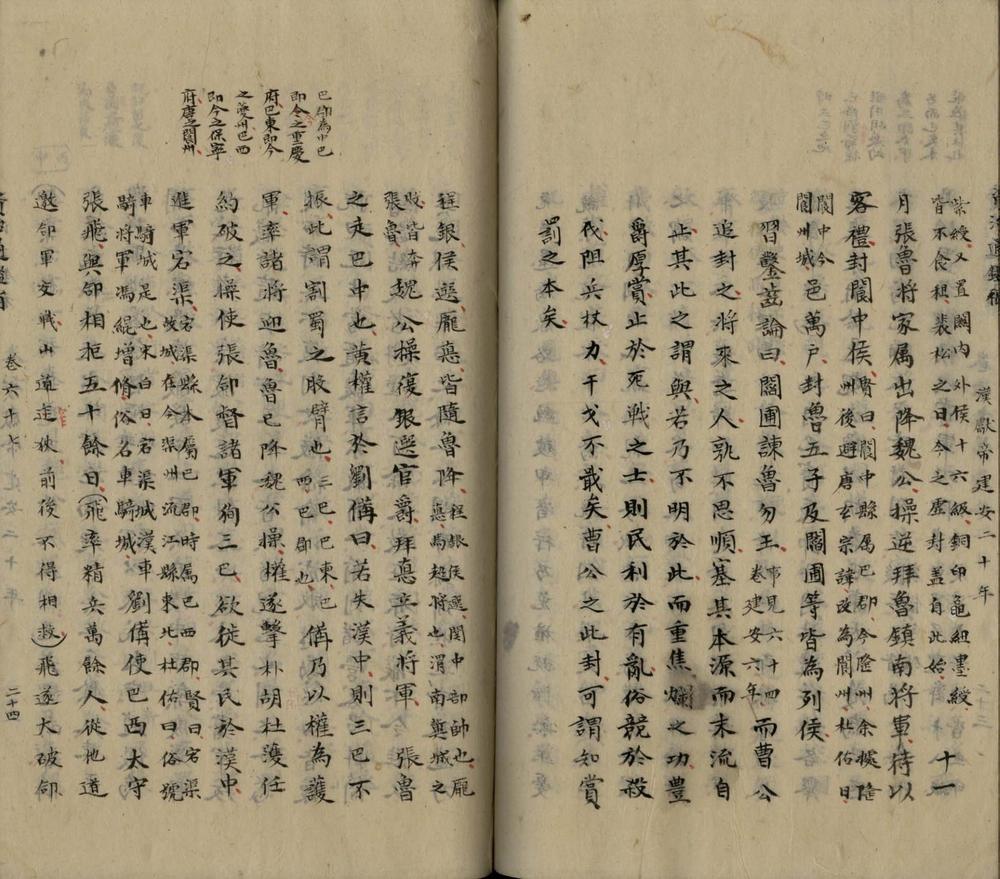 漢獻帝建安二十年
紫綬又置關內外侯十六級銅印龜紐墨綬
皆不食租裴松之曰今之虛封蓋自此始
十一
月張魯將家属出降魏公操逆拜魯鎮南將軍待以
客禮封閬中侯
賢曰閬中縣属巴郡今隆州余據隆
州後避唐玄宗諱改為閬州杜佑曰
閬中今
閬州城
邑萬戶封魯五子及閻圃等皆為列侯
習鑿齒論曰閻圃諫魯勿王
事見六十四
卷建安六年
而曹公
追封之將來之人孰不思順塞其本源而末流自
止其此之謂與若乃不明於此而重焦爛之功豊
爵厚賞止於死戰之士則民利於有亂俗競於殺
伐阻兵杖力干戈不戢矣曹公之此封可謂知賞
罰之本矣
巴郡為中巴
即今之重慶
府巴東即今
之夔州巴西
即今之保寧
府唐之閬州
程銀侯選龐悳皆隨魯降
程銀侯選関中部帥也龐
悳馬超將也渭南冀城之
敗皆奔
張魯
魏公操復銀選官爵拜悳立義將軍
張魯
之走巴中也黃權言於劉備曰若失漢中則三巴不
振此謂割蜀之股臂也
三巴巴東巴
西巴郡也
備乃以權為護
軍率諸將迎魯魯已降魏公操權遂擊朴胡杜濩任
約破之操使張郃督諸軍狥三巴欲徙其民於漢中
進軍宕渠
宕渠縣本属巴郡時属巴西郡賢曰宕渠
故城在今渠州流江縣東北杜佑曰俗號
車騎城是也宋白曰宕渠城漢車
騎將軍馮緄增脩俗名車騎城
劉備使巴西太守
張飛與郃相拒五十餘日飛率精兵萬餘人從他道
邀郃軍交戰山道迮狹前後不得相救飛遂大破郃
卷六十七
建安二十年
二十四